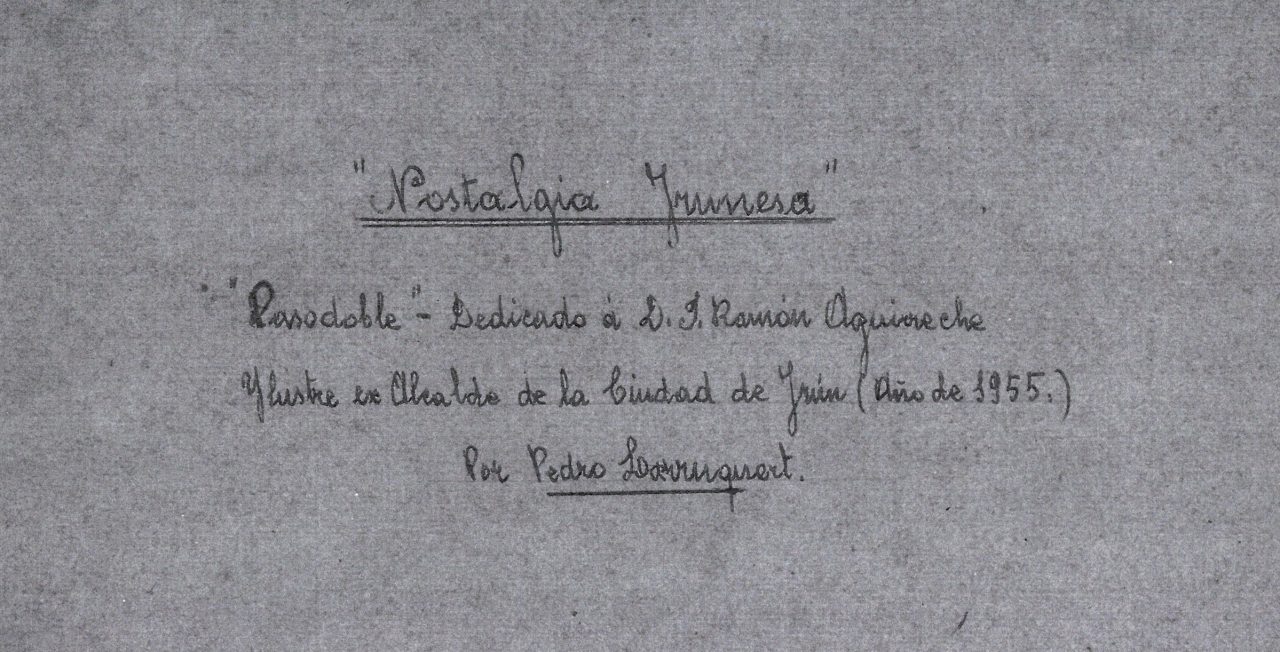 "Nostalgia Yrunesa"
"Pasodoble" - Dedicado á D. J. Ramón Aguirreche
Ylustre ex Alcalde de la Ciudad de Yrún (Año de 1955.)
Por Pedro Larruquert.